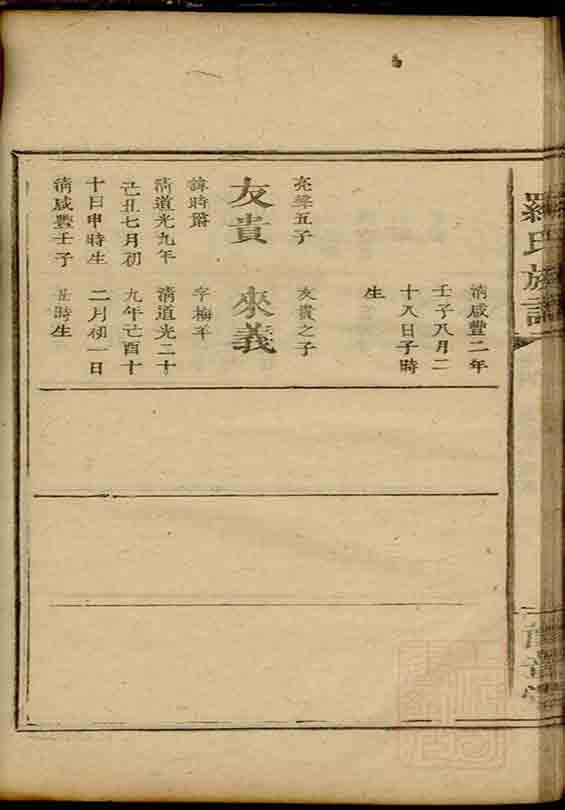 羅氏族譜
清咸豐二年
壬子八月二
十八日子時
生
亮聲五子
友貴
諱時
清道光九年
己丑七月初
十日申時生
清咸豐壬子
友貴之子
來義
字梅羊
清道光二十
九年己酉十
二月初一日
丑時生